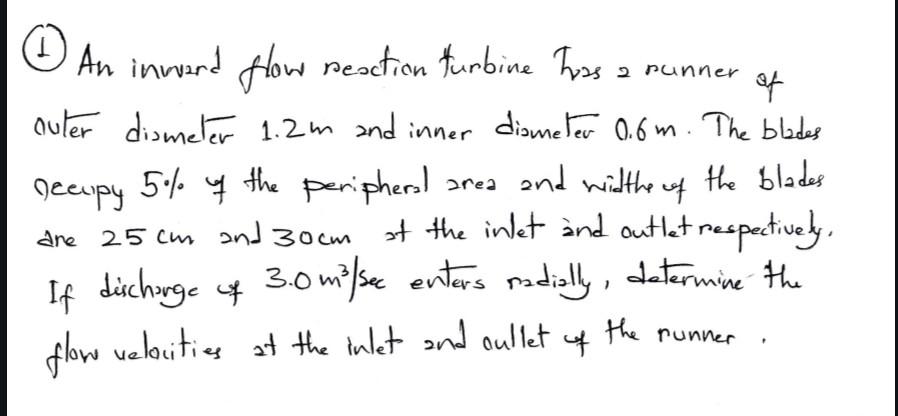 ① An inward flow reaction turbine has a runner of
outer diameter 1.2m and inner diameter 0.6 m. The blades
occupy 5% of the peripheral area and widths of the blades
are 25 cm and 30cm at the inlet and outlet respectively.
If discharge of 3.0 m³/sec enters radially, determine the
flow velocities at the inlet and outlet of the runner.